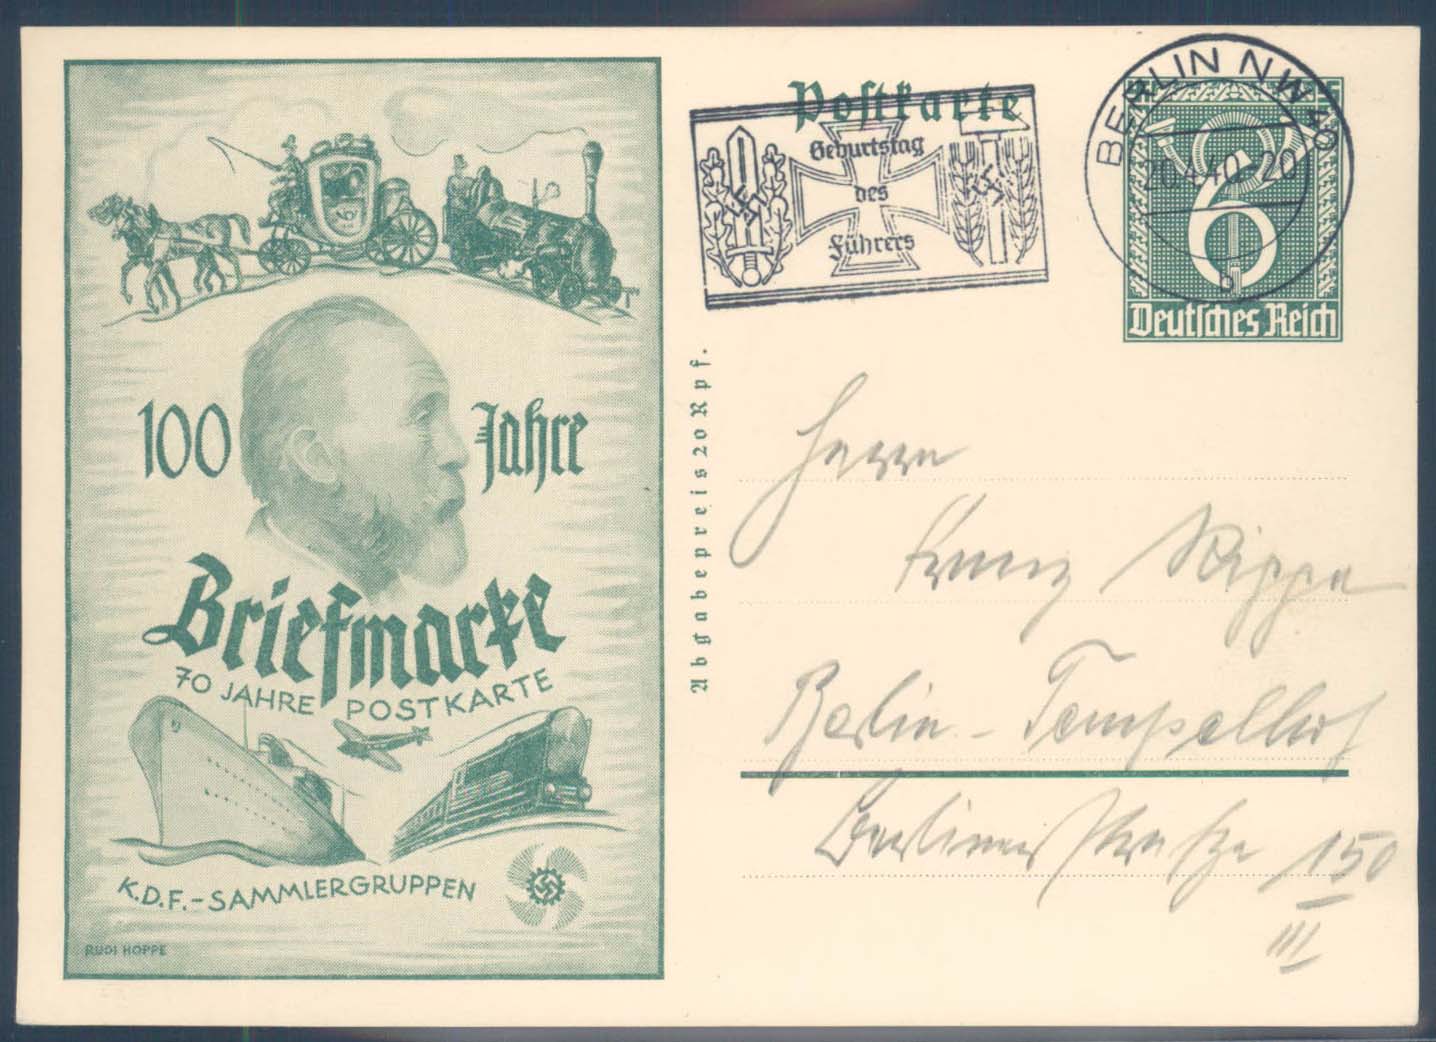 100 Jahre
Briefmarke
70 JAHRE POSTKARTE
K.D.F.-SAMMLERGRUPPEN
RUDI HOPPE
Postkarte
Geburtstag
des
Führers
BERLIN NW 40
20.4.40.-20
b
6
Deutsches Reich
Abgabepreis 20 Rpf.
Herrn
Franz
Berlin - Tempelhof
Berliner Straße 150
III